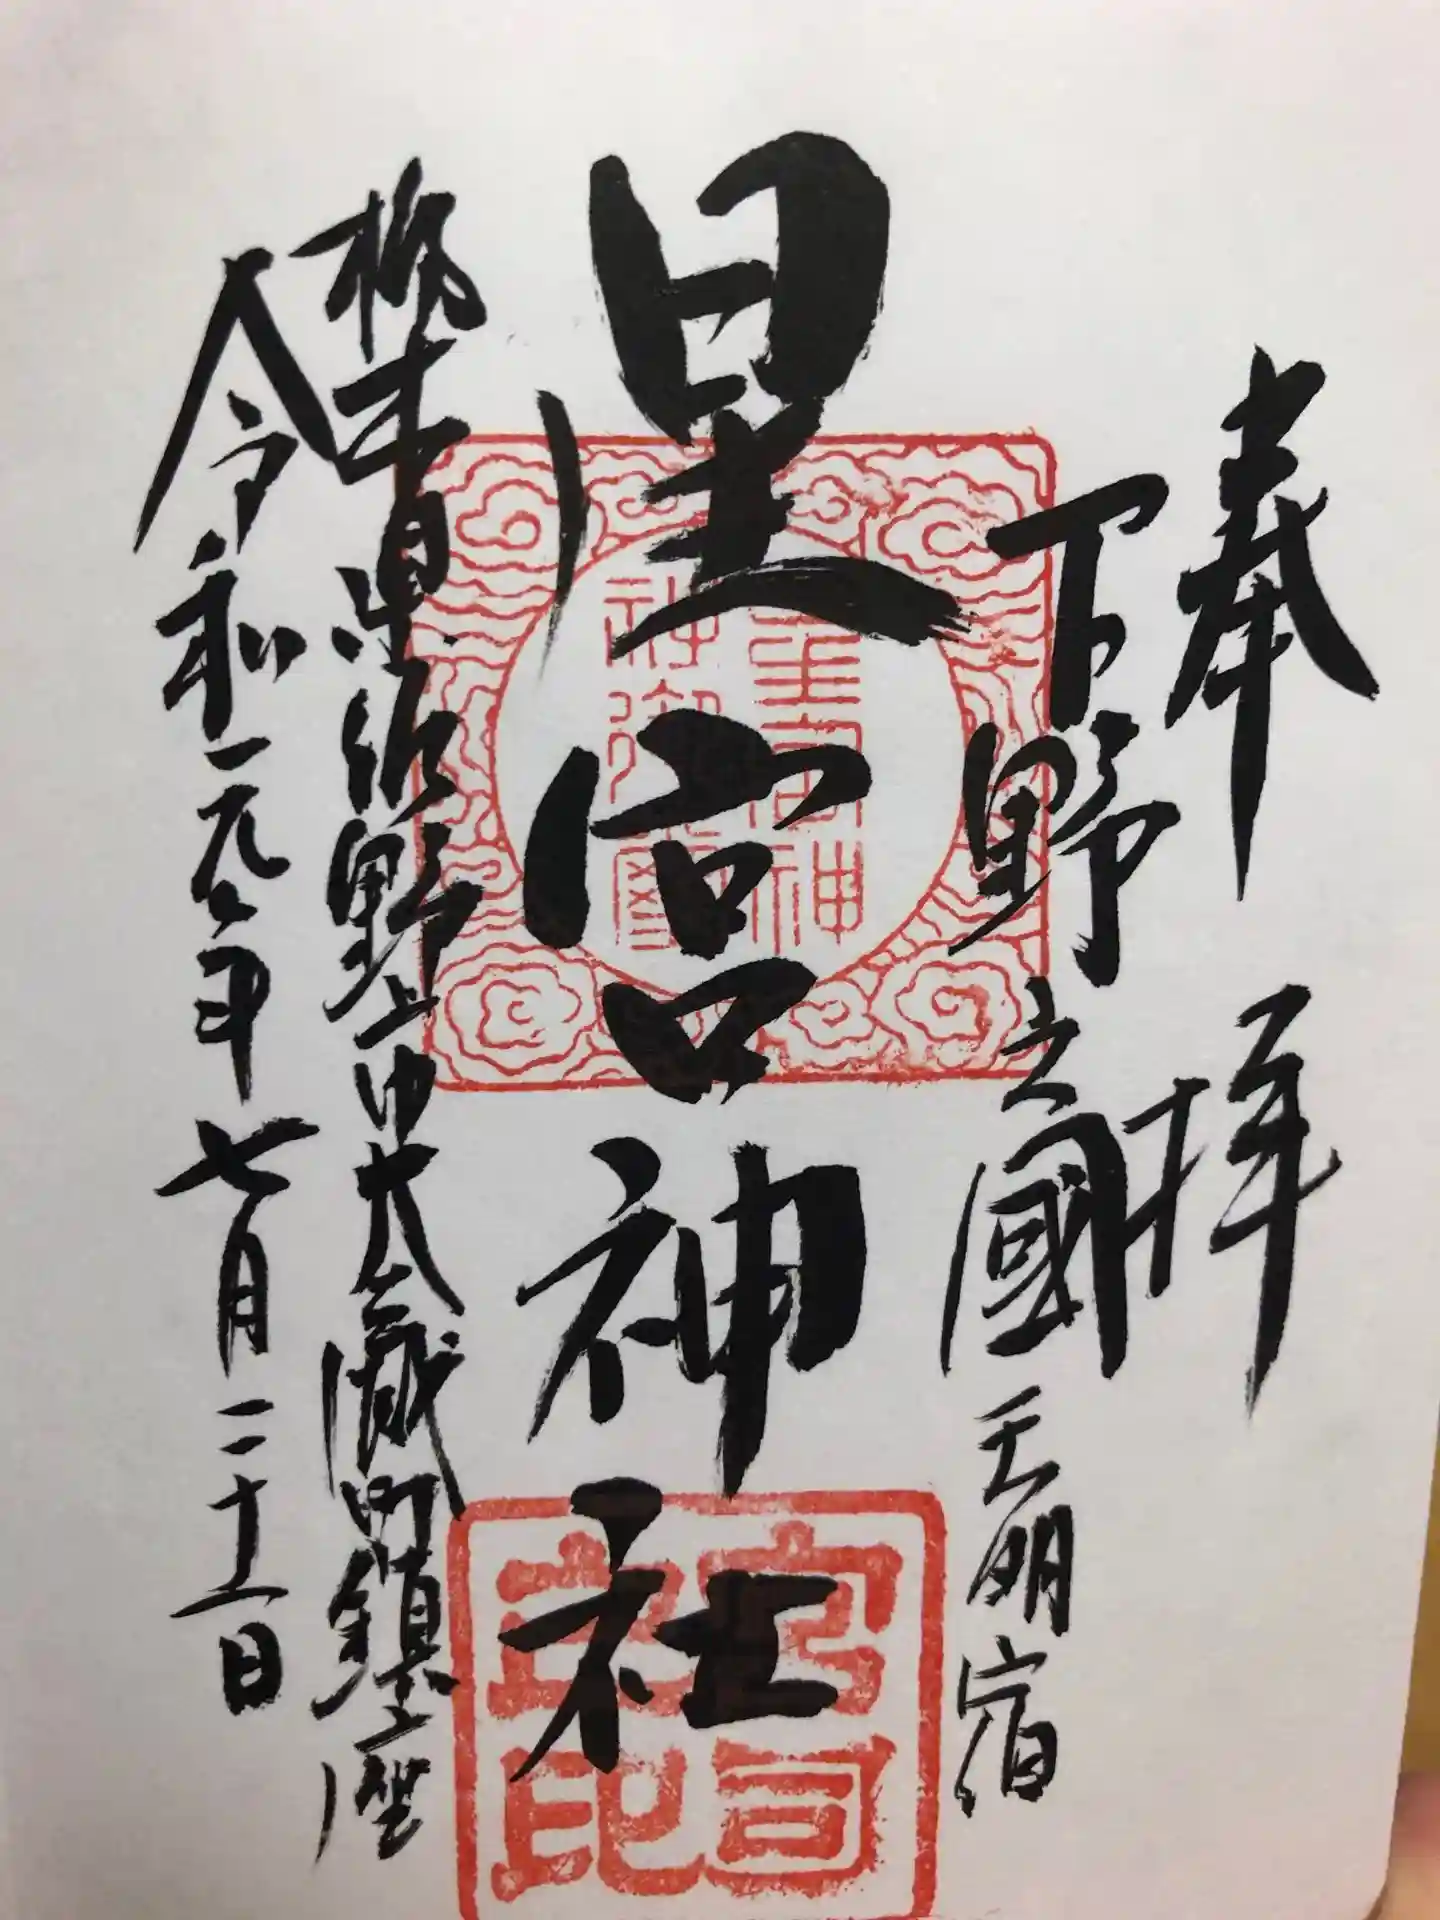 奉拝
下野之國 天明宿
星宮神社
栃木県佐野上中大蔵町鎮座
令和元年七月二十一日
星宮神社御璽
宮司之印